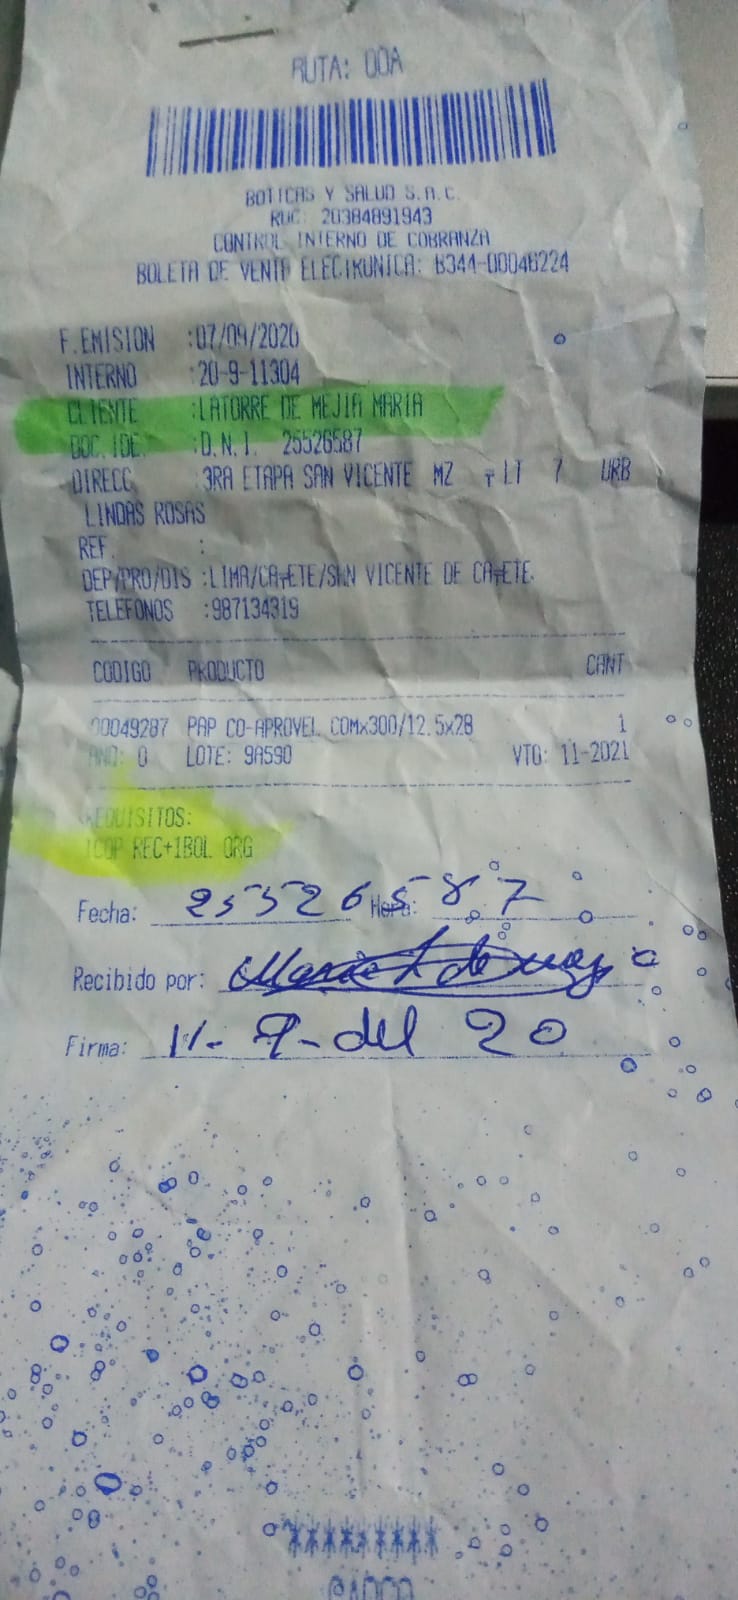 RUTA: 00A
BOTICAS Y SALUD S.A.C.
RUC: 20384891943
CONTROL INTERNO DE COBRANZA
BOLETA DE VENTA ELECTRONICA: B344-00046224
F.EMISION :07/09/2020
INTERNO :20-9-11304
CLIENTE :LATORRE DE MEJIA MARIA
DOC.IDE. :D.N.I. 25526587
DIRECC :3RA ETAPA SAN VICENTE MZ LT 7 URB
LINDAS ROSAS
REF. :
DEP/PRO/DIS :LIMA/CAÑETE/SAN VICENTE DE CAÑETE
TELEFONOS :987134319
CODIGO PRODUCTO CANT
00049287 PAP CO-APROVEL COMx300/12.5x28 1
ANO: 0 LOTE: 9A590 VTO: 11-2021
REQUISITOS:
1COP REC+1BOL ORG
Fecha: 25526587 Hora:
Recibido por:
Firma: 11-9-del 20
*********